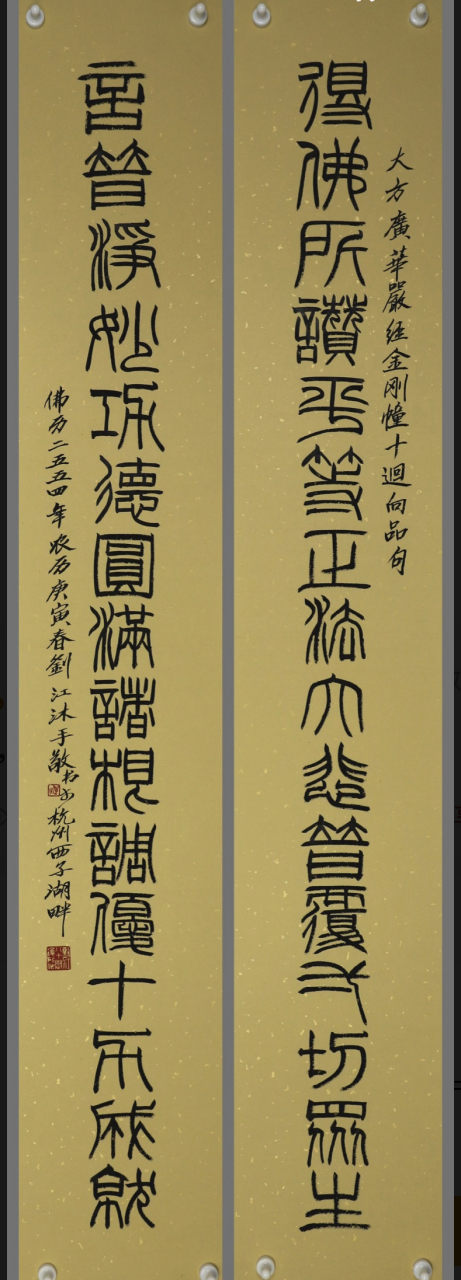 大方廣華嚴经金剛幢十迴向品句
得佛所讚平等正法大悲普覆弌切眾生
言普淨妙功德圓滿諸根調優十力成就
佛历二五五四年农历庚寅春劉江沐手敬书於杭州西子湖畔